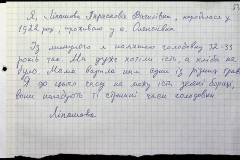 Я, Ліпашова Параскева Фисіївна, народилася у
1922 році, проживаю у с. Олексіївка
Із минулого я пам'ятаю голодовку 32-33
років так. Ми дуже хотіли їсти, а хліба не
було. Мама варила нам один із різних трав
Я до цього часу не можу їсти зелені борщі,
вони нагадують ті страшні часи голодовки
Ліпашова